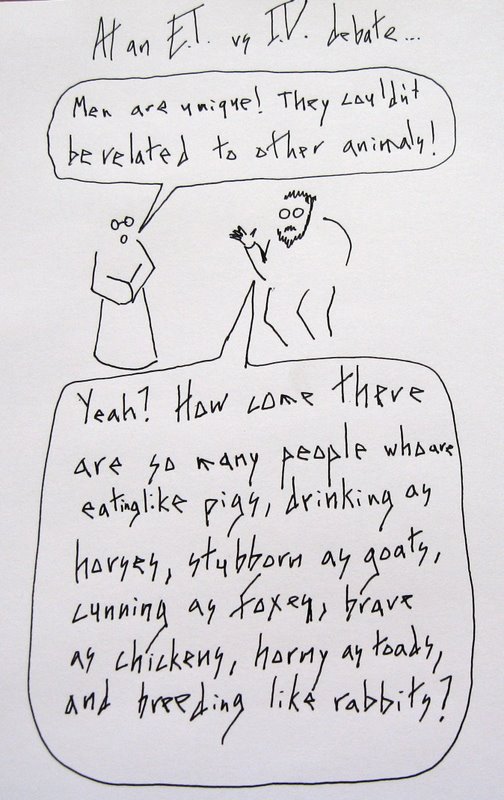 At an E.T. vs I.D. debate...
Men are unique! They couldn't
be related to other animals!
Yeah? How come there
are so many people who are
eating like pigs, drinking as
horses, stubborn as goats,
cunning as foxes, brave
as chickens, horny as toads,
and breeding like rabbits?